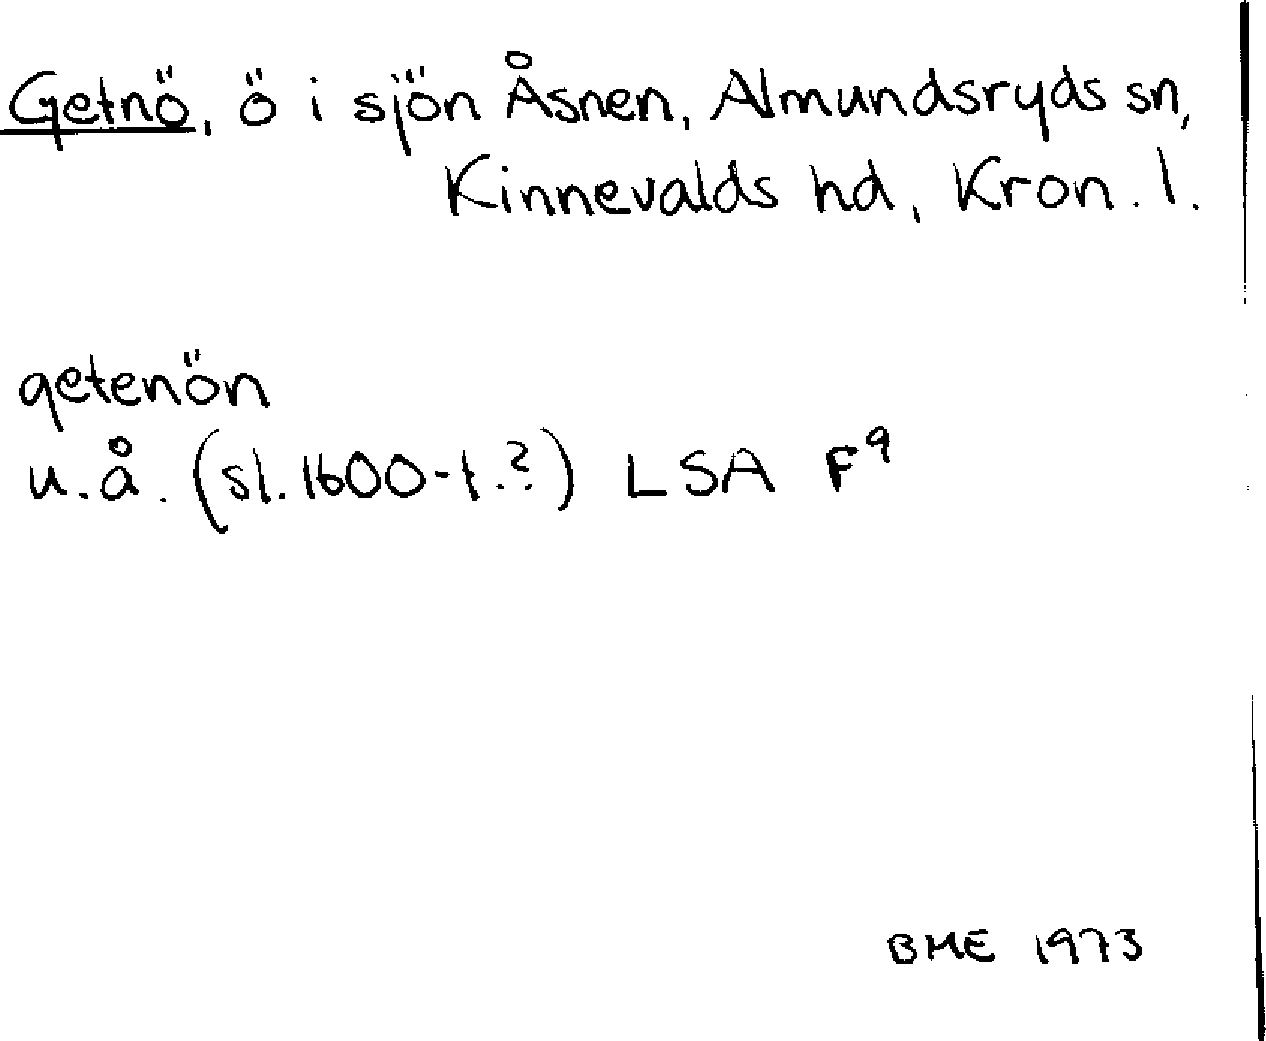 Getnö, ö i sjön Åsnen, Almundsryds sn,
Kinnevalds hd, Kron. l.
getenön
u.å. (sl. 1600-t.?) LSA F9
BME 1973